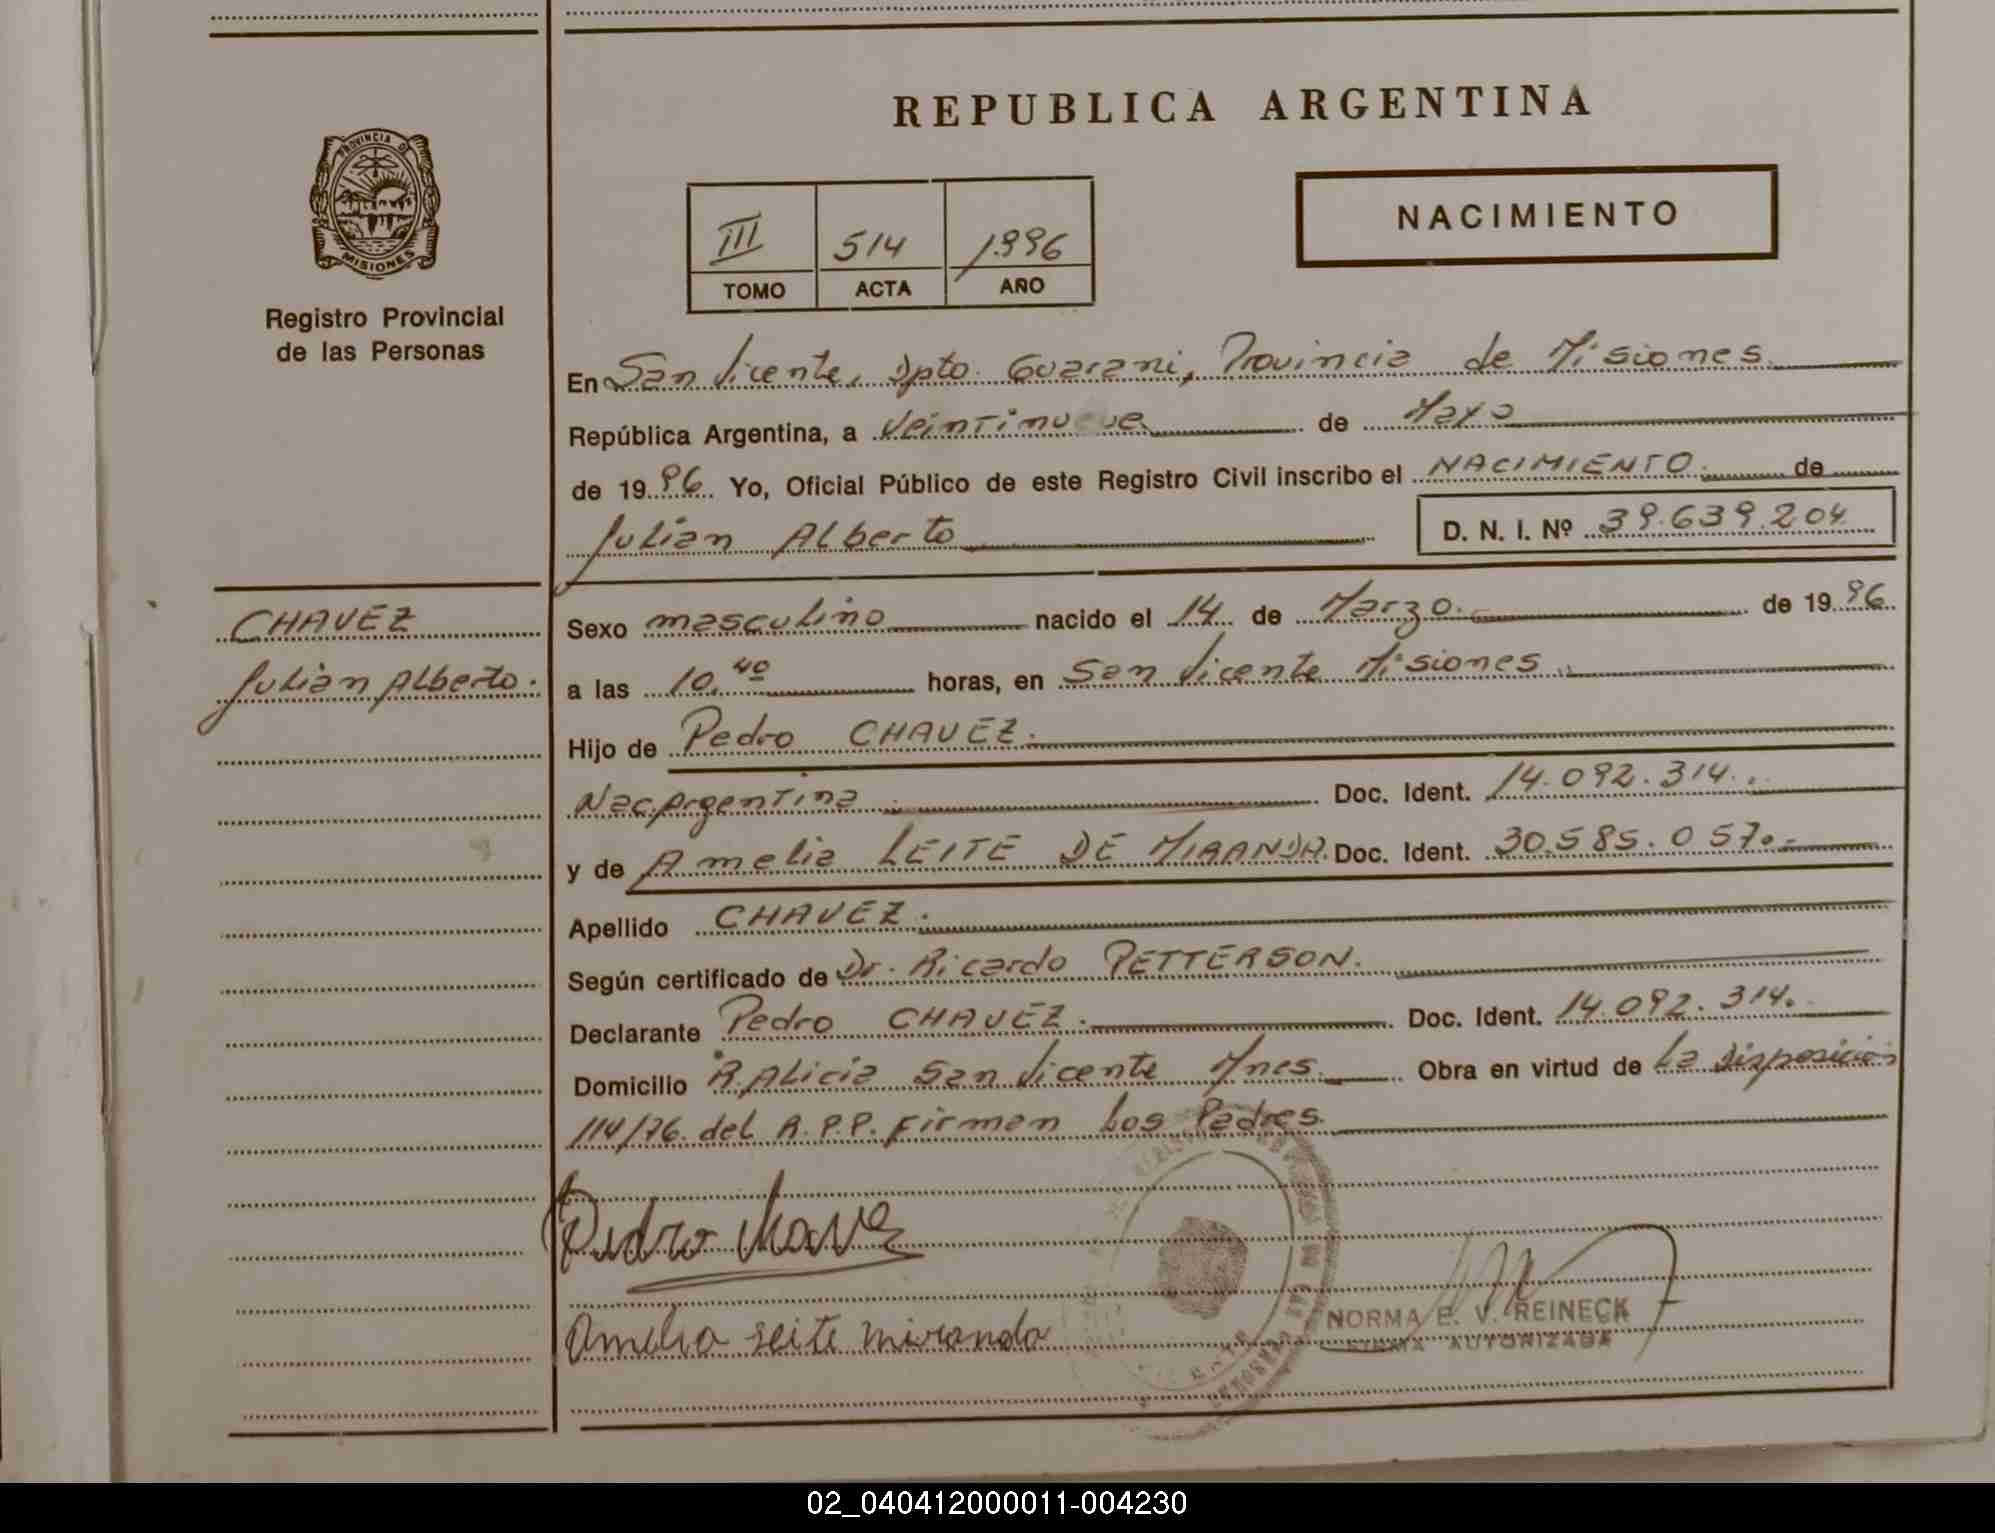 REPUBLICA ARGENTINA
PROVINCIA DE
MISIONES
Registro Provincial
de las Personas
III 514 1996
TOMO ACTA AÑO
NACIMIENTO
En San Vicente, Dpto. Guarani, Provincia de Misiones.
República Argentina, a Veintinueve de Mayo
de 1996. Yo, Oficial Público de este Registro Civil inscribo el NACIMIENTO de
Julian Alberto D. N. I. Nº 39.639.204
CHAVEZ
Julian Alberto.
Sexo masculino nacido el 14 de Marzo. de 1996.
a las 10.40 horas, en San Vicente Misiones
Hijo de Pedro CHAVEZ.
Nac. Argentina Doc. Ident. 14.092.314.
y de Amelia LEITE DE MIRANDA. Doc. Ident. 30.585.057.-
Apellido CHAVEZ.
Según certificado de Dr. Ricardo PETTERSON.
Declarante Pedro CHAVEZ. Doc. Ident. 14.092.314.
Domicilio A. Alicia San Vicente Mnes. Obra en virtud de La Disposicion
114/76 del R.P.P. Firman Los Padres.
Pedro Chavez
Amelia Leite miranda
NORMA E. V. REINECK
FIRMA AUTORIZADA
02_040412000011-004230